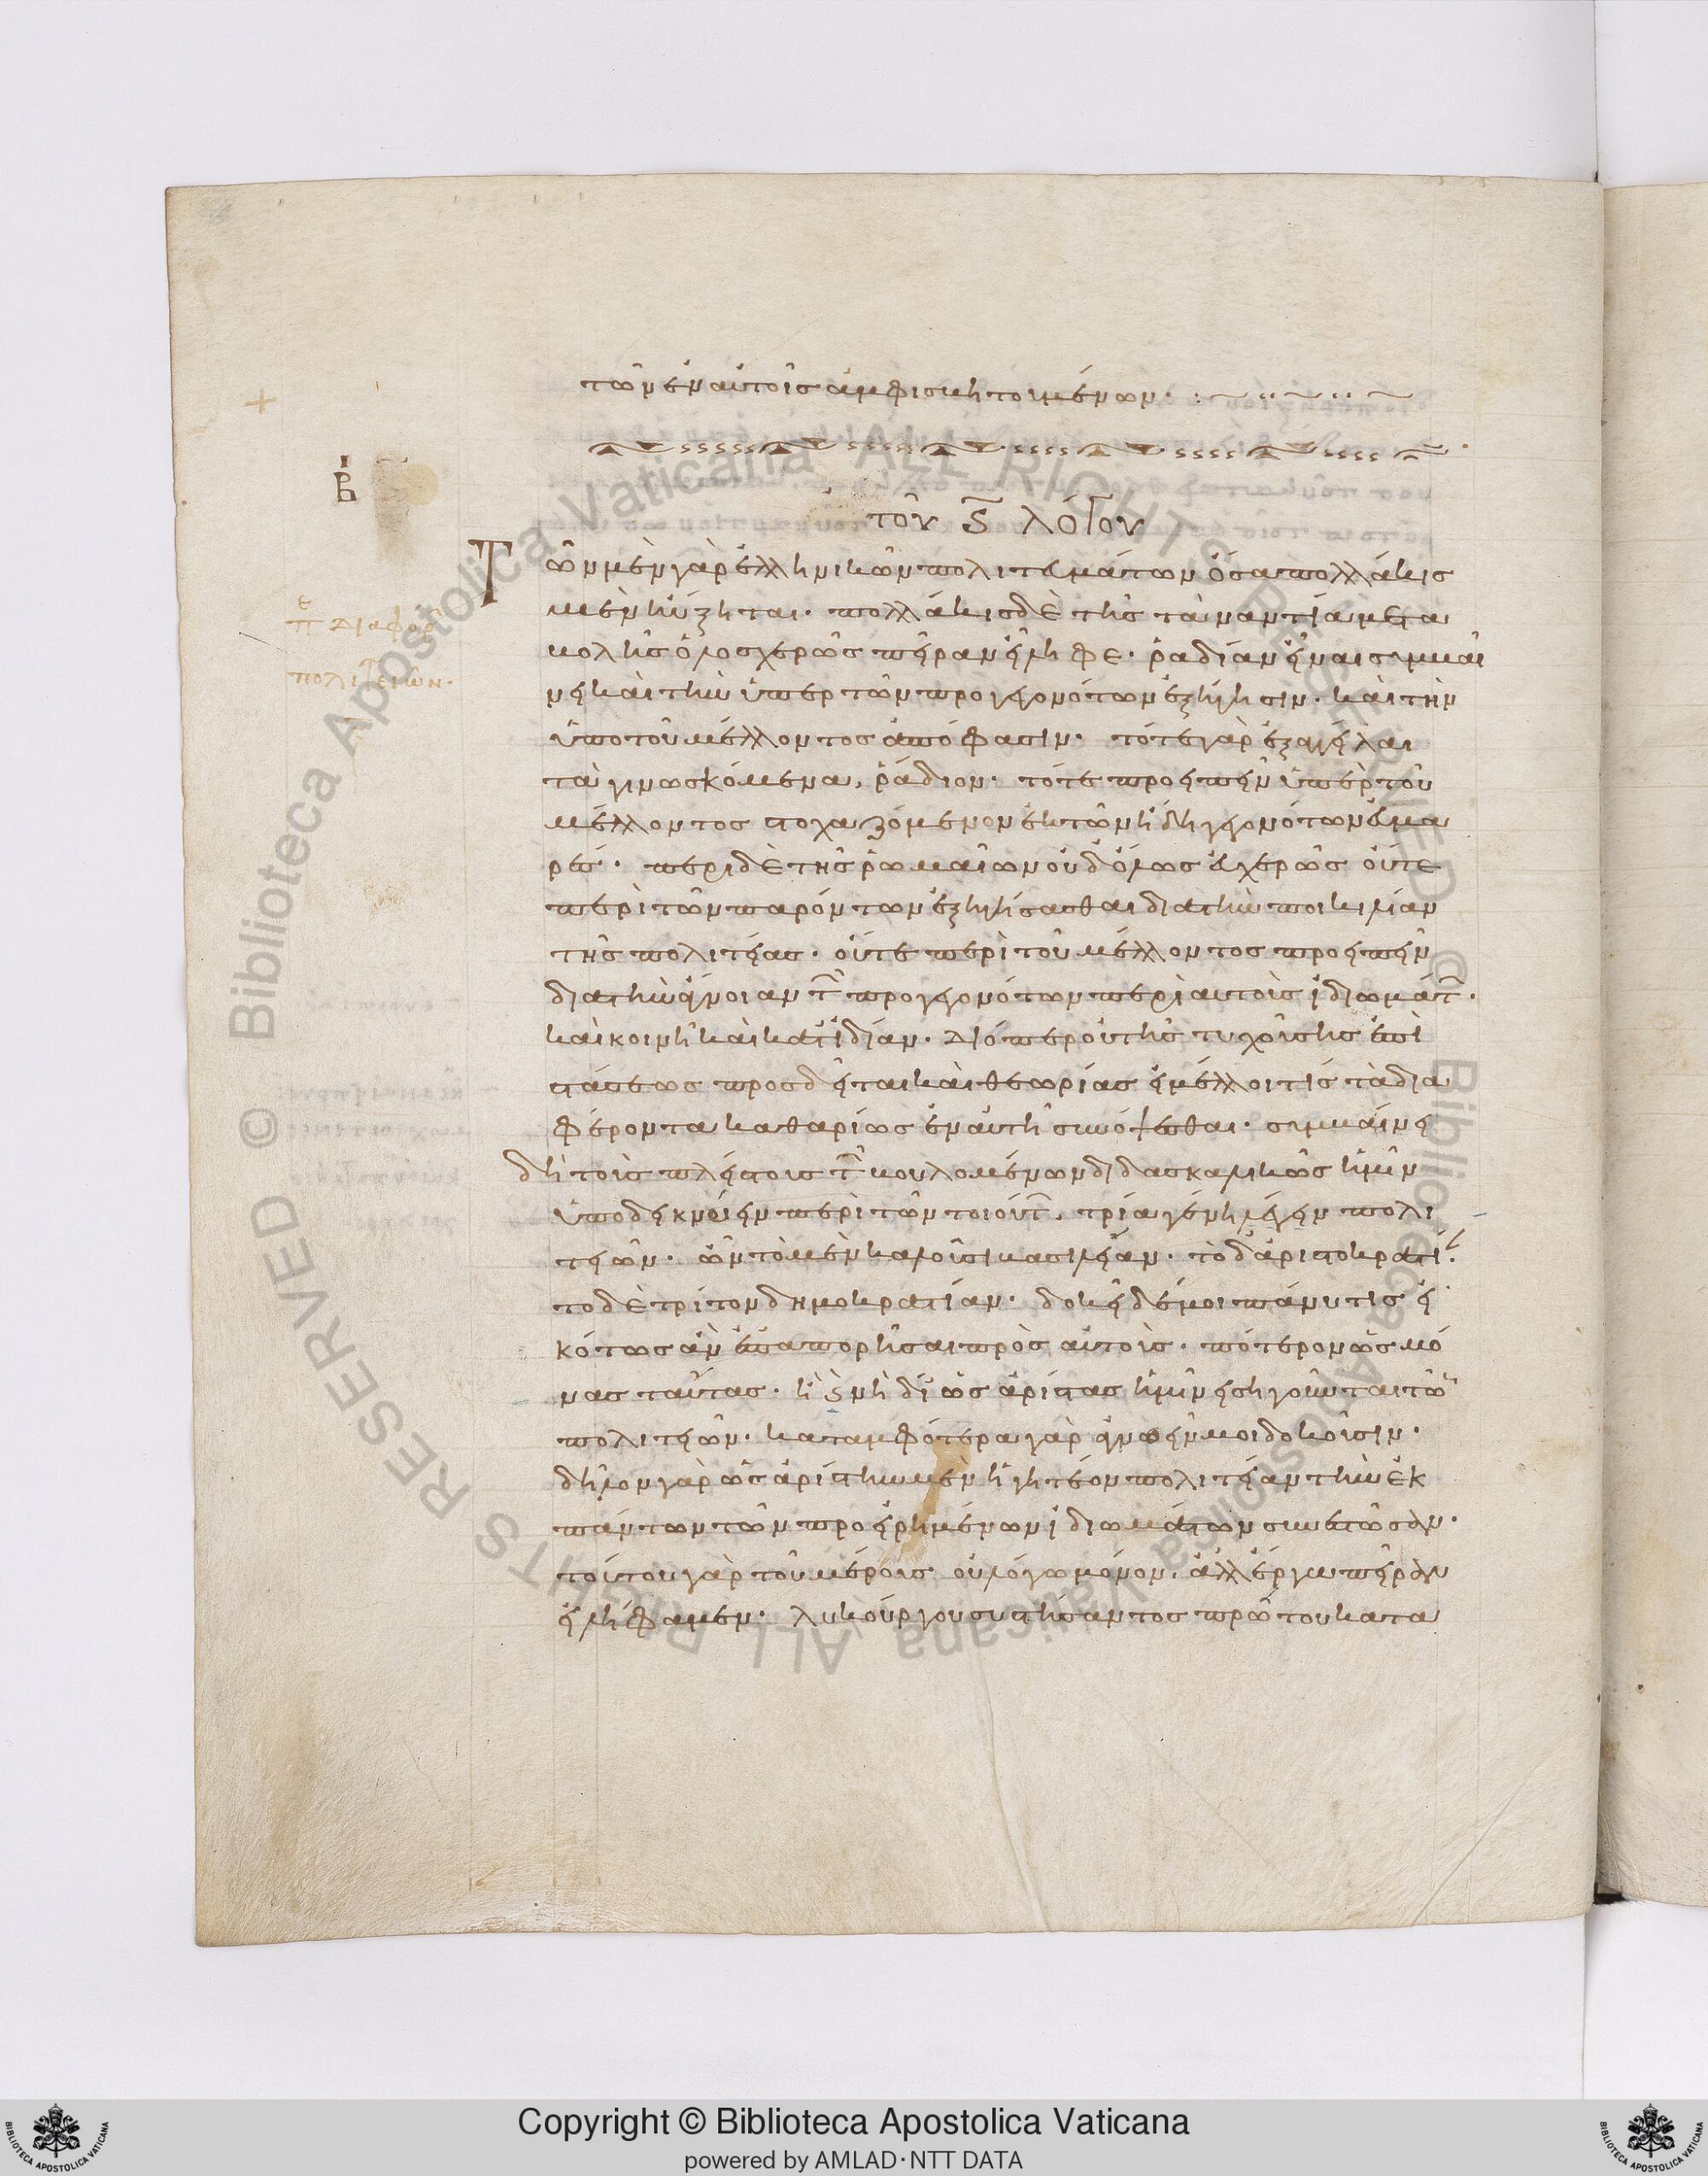 τῶν ἐν αὐτοῖς ἀμφισβητουμένων·
Β
τοῦ ς λόγου
Τῶν μὲν γὰρ ἑλληνικῶν πολιτευμάτων ὅσα πολλάκις
μὲν ηὔξηται· πολλάκις δὲ τῆς τἀναντία μετα
βολῆς ὁλοσχερῶς πεῖραν εἴληφε· ῥαδίαν εἶναι συμβαί
νει καὶ τὴν ὑπὲρ τῶν προγεγονότων ἐξήγησιν· καὶ τὴν
ὑπὸ τοῦ μέλλοντος ἀπόφασιν· τότε γὰρ ἐξαγγεῖλαι
τὰ γινωσκόμενα, ῥάδιον· τότε προειπεῖν ὑπὲρ τοῦ
μέλλοντος στοχαζόμενον ἐκ τῶν ἤδη γεγονότων εὐμα
ρές· περὶ δὲ τῆς ῥωμαίων οὐδ' ὅλως εὐχερῶς οὔτε
περὶ τῶν παρόντων ἐξηγήσασθαι διὰ τὴν ποικιλίαν
τῆς πολιτείας· οὔτε περὶ τοῦ μέλλοντος προειπεῖν
διὰ τὴν ἄγνοιαν τ προγεγονότων περὶ αὐτοὺς ἰδιωμάτ·
καὶ κοινῇ καὶ κατ' ἰδίαν. Διόπερ οὐ τῆς τυχούσης ἐπι
στάσεως προσδεῖται καὶ θεωρίας εἰ μέλλοι τίς τὰ δια
φέροντα καθαρίως ἐν αὐτῇ συνόψεσθαι· συμβαίνει
δὴ τοὺς πλείστους τ βουλομένων διδασκαλικῶς ἡμῖν
ὑποδεικνύειν περὶ τῶν τοιούτ, τρία γένη λέγειν πολι
τειῶν· ὧν τὸ μὲν καλοῦσι βασιλείαν· τὸ δ' ἀριστοκρατί·
τὸ δὲ τρίτον δημοκρατίαν· δοκεῖ δέ μοι πάνυ τις εἰ
κότως ἂν ἐπαπορῆσαι πρὸς αὐτούς· πότερον ὡς μό
νας ταύτας· ἢ καὶ νὴ δί' ὡς ἀρίστας ἡμῖν εἰσηγοῦνται τῶ
πολιτειῶν· κατ' ἀμφότερα γὰρ ἀγνοεῖν μοι δοκοῦσιν·
δῆλον γὰρ ὡς ἀρίστην μὲν ἡγητέον πολιτείαν τὴν ἐκ
πάντων τῶν προειρημένων ἰδιωμάτων συνεστῶσαν·
τούτου γὰρ τοῦ μέρους οὐ λόγω μόνον, ἀλλ' ἔργω πεῖραν
εἰλήφαμεν· λυκούργου συστήσαντος πρώτου κατὰ
πε διαφορ
πολιτειῶν·
© Biblioteca Apostolica Vaticana ALL RIGHTS RESERVED
© Biblioteca Apostolica Vaticana ALL RIGHTS RESERVED
Copyright © Biblioteca Apostolica Vaticana
powered by AMLAD·NTT DATA
BIBLIOTECA APOSTOLICA VATICANA
BIBLIOTECA APOSTOLICA VATICANA